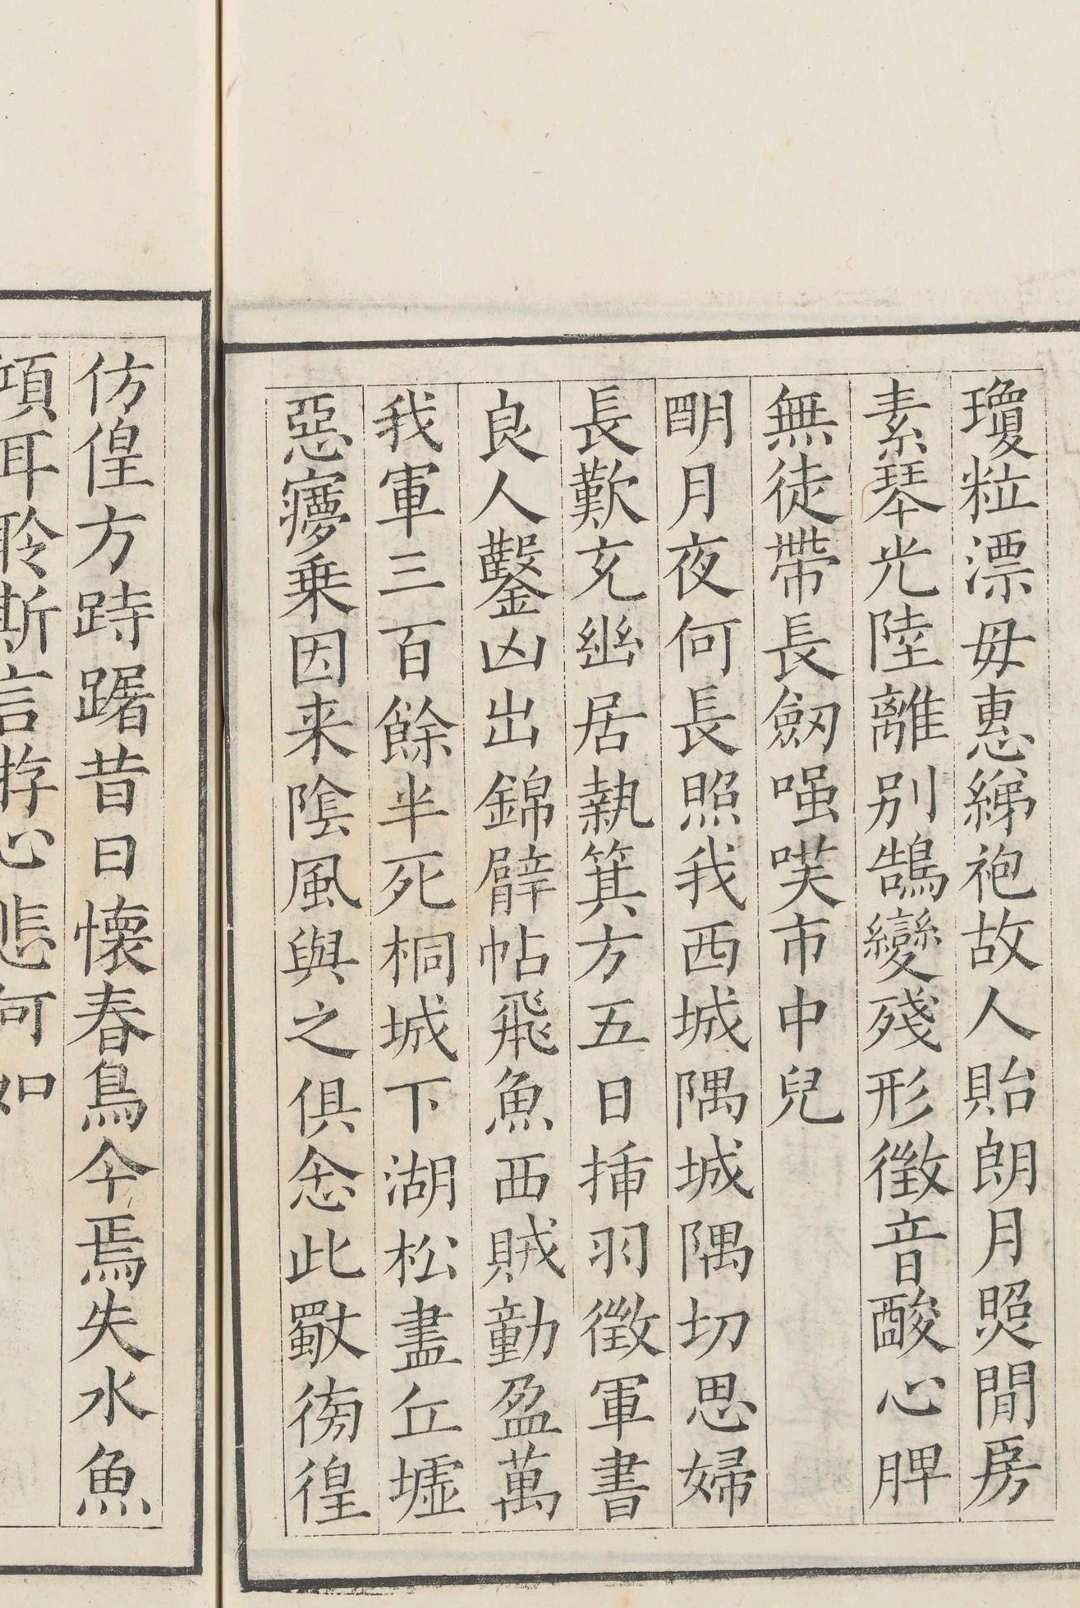 瓊粒漂毋惠綈袍故人貽朗月照閒房
素琴光陸離別鵠變殘形徵音酸心脾
無徒帶長劔嘎嘆市中兒
明月夜何長照我西城隅城隅切思婦
長歎充幽居執箕方五日揷羽徵軍書
良人鑿凶出錦臂帖飛魚西賊動盈萬
我軍三百餘半死桐城下湖松盡丘墟
惡㝱乗因来陰風與之俱念此獸徬徨
仿偟方跱躇昔日懷春鳥今焉失水魚
項耳聆斯言㳺心悲何如